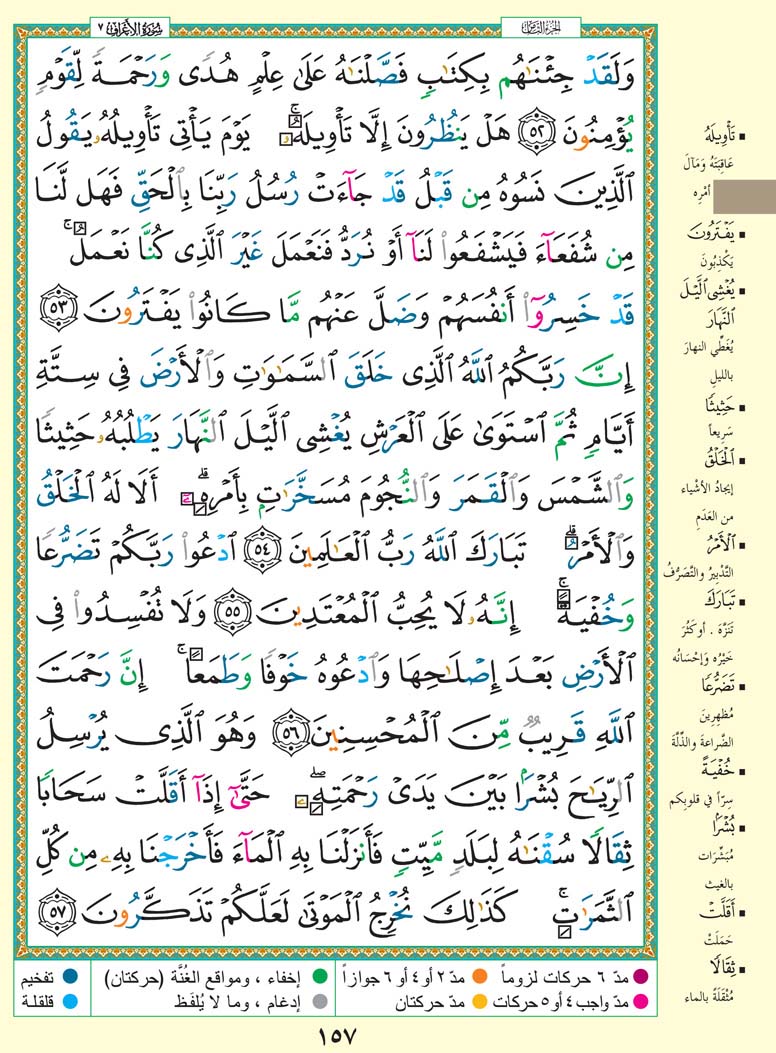 سُورَةُ الأَعْرَافِ ٧
الجُزْءُ الثَّامِن
وَلَقَدْ جِئْنَٰهُم بِكِتَٰبٍ فَصَّلْنَٰهُ عَلَىٰ عِلْمٍ هُدًى وَرَحْمَةً لِّقَوْمٍ
يُؤْمِنُونَ ٥٢ هَلْ يَنظُرُونَ إِلَّا تَأْوِيلَهُۥ ۚ يَوْمَ يَأْتِى تَأْوِيلُهُۥ يَقُولُ
ٱلَّذِينَ نَسُوهُ مِن قَبْلُ قَدْ جَآءَتْ رُسُلُ رَبِّنَا بِٱلْحَقِّ فَهَل لَّنَا
مِن شُفَعَآءَ فَيَشْفَعُوا۟ لَنَآ أَوْ نُرَدُّ فَنَعْمَلَ غَيْرَ ٱلَّذِى كُنَّا نَعْمَلُ ۚ
قَدْ خَسِرُوٓا۟ أَنفُسَهُمْ وَضَلَّ عَنْهُم مَّا كَانُوا۟ يَفْتَرُونَ ٥٣
إِنَّ رَبَّكُمُ ٱللَّهُ ٱلَّذِى خَلَقَ ٱلسَّمَٰوَٰتِ وَٱلْأَرْضَ فِى سِتَّةِ
أَيَّامٍ ثُمَّ ٱسْتَوَىٰ عَلَى ٱلْعَرْشِ يُغْشِى ٱلَّيْلَ ٱلنَّهَارَ يَطْلُبُهُۥ حَثِيثًا
وَٱلشَّمْسَ وَٱلْقَمَرَ وَٱلنُّجُومَ مُسَخَّرَٰتٍۭ بِأَمْرِهِۦٓ ۗ أَلَا لَهُ ٱلْخَلْقُ
وَٱلْأَمْرُ ۗ تَبَارَكَ ٱللَّهُ رَبُّ ٱلْعَٰلَمِينَ ٥٤ ٱدْعُوا۟ رَبَّكُمْ تَضَرُّعًا
وَخُفْيَةً ۚ إِنَّهُۥ لَا يُحِبُّ ٱلْمُعْتَدِينَ ٥٥ وَلَا تُفْسِدُوا۟ فِى
ٱلْأَرْضِ بَعْدَ إِصْلَٰحِهَا وَٱدْعُوهُ خَوْفًا وَطَمَعًا ۚ إِنَّ رَحْمَتَ
ٱللَّهِ قَرِيبٌ مِّنَ ٱلْمُحْسِنِينَ ٥٦ وَهُوَ ٱلَّذِى يُرْسِلُ
ٱلرِّيَٰحَ بُشْرًۢا بَيْنَ يَدَىْ رَحْمَتِهِۦ ۖ حَتَّىٰٓ إِذَآ أَقَلَّتْ سَحَابًا
ثِقَالًا سُقْنَٰهُ لِبَلَدٍ مَّيِّتٍ فَأَنزَلْنَا بِهِ ٱلْمَآءَ فَأَخْرَجْنَا بِهِۦ مِن كُلِّ
ٱلثَّمَرَٰتِ ۚ كَذَٰلِكَ نُخْرِجُ ٱلْمَوْتَىٰ لَعَلَّكُمْ تَذَكَّرُونَ ٥٧
▪ تَأْوِيلَهُ
عَاقِبَتَهُ وَمَآلَ
أمْرِه
▪ يَفْتَرُونَ
يَكْذِبُونَ
▪ يُغْشِى ٱلَّيْلَ
ٱلنَّهَارَ
يُغَطِّي النهارَ
بالليلِ
▪ حَثِيثًا
سَرِيعاً
▪ ٱلْخَلْقُ
إيجادُ الأشياء
من العَدَمِ
▪ ٱلْأَمْرُ
التَّدْبِيرُ والتَّصَرُّفُ
▪ تَبَارَكَ
تَنَزَّهَ . أو كَثُرَ
خَيْرُه وَإحْسَانُه
▪ تَضَرُّعًا
مُظهِرِينَ
الضَّراعةَ والذِّلَّةَ
▪ خُفْيَةً
سِرّاً في قلوبِكم
▪ بُشْرًا
مُبَشِّرَات
بالغيث
▪ أَقَلَّتْ
حَمَلَتْ
▪ ثِقَالًا
مُثْقَلَةً بالماء
مدّ ٦ حركات لزوماً مدّ ٢ أو ٤ أو ٦ جوازاً إخفاء ، ومواقع الغُنَّة (حركتان) تفخيم
مدّ واجب ٤ أو ٥ حركات مدّ حركتان إدغام ، وما لا يُلفَظ قلقلة
١٥٧